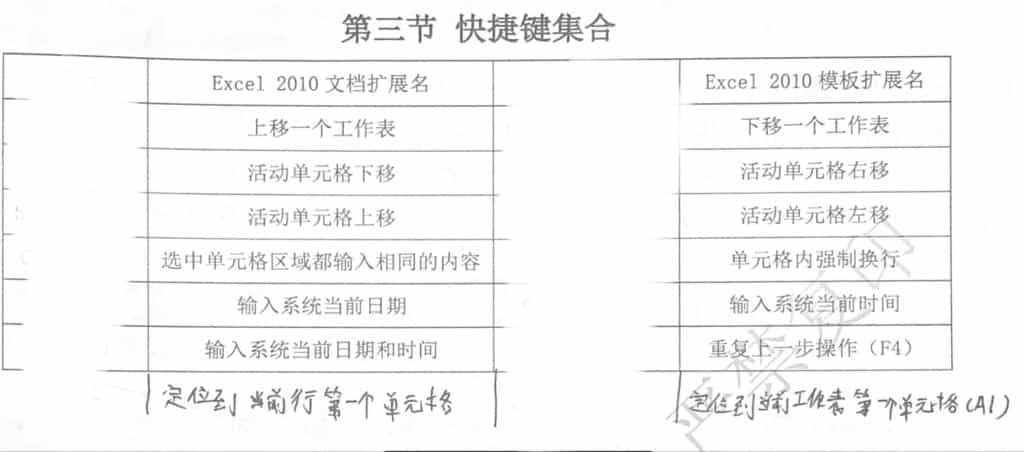 第三节 快捷键集合
Excel 2010 文档扩展名 Excel 2010 模板扩展名
上移一个工作表 下移一个工作表
活动单元格下移 活动单元格右移
活动单元格上移 活动单元格左移
选中单元格区域都输入相同的内容 单元格内强制换行
输入系统当前日期 输入系统当前时间
输入系统当前日期和时间 重复上一步操作（F4）
定位到当前行第一个单元格 定位到当前工作表第一个单元格(A1)
严禁复印